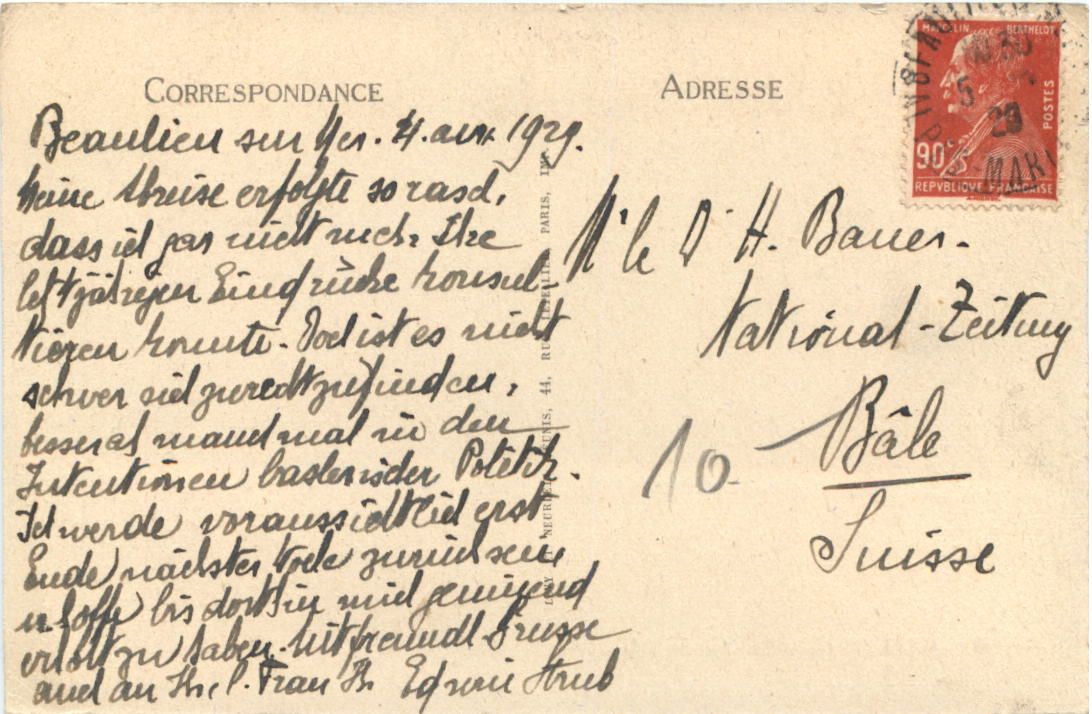 CORRESPONDANCE
Beaulieu sur Mer. 4. avr. 1929.
Meine Abreise erfolgte so rasch,
dass ich gar nicht mehr Ihre
letztjährigen Eindrücke konsul-
tieren konnte. Doch ist es nicht
schwer sich zurechtzufinden,
besser als manchmal in den
Intentionen baslerischer Politik.
Ich werde voraussichtlich erst
Ende nächster Woche zurück sein
u. hoffe bis dorthin mich genügend
erholt zu haben. Mit freundl. Grüsse
auch an Ihre l. Frau Ihr Edwin Strub
ADRESSE
Mr le Dr H. Bauer.
National-Zeitung
Bâle
Suisse
10.
MARCELIN BERTHELOT
POSTES
90c
REPVBLIQVE FRANÇAISE
5
29
44, RUE PARIS,